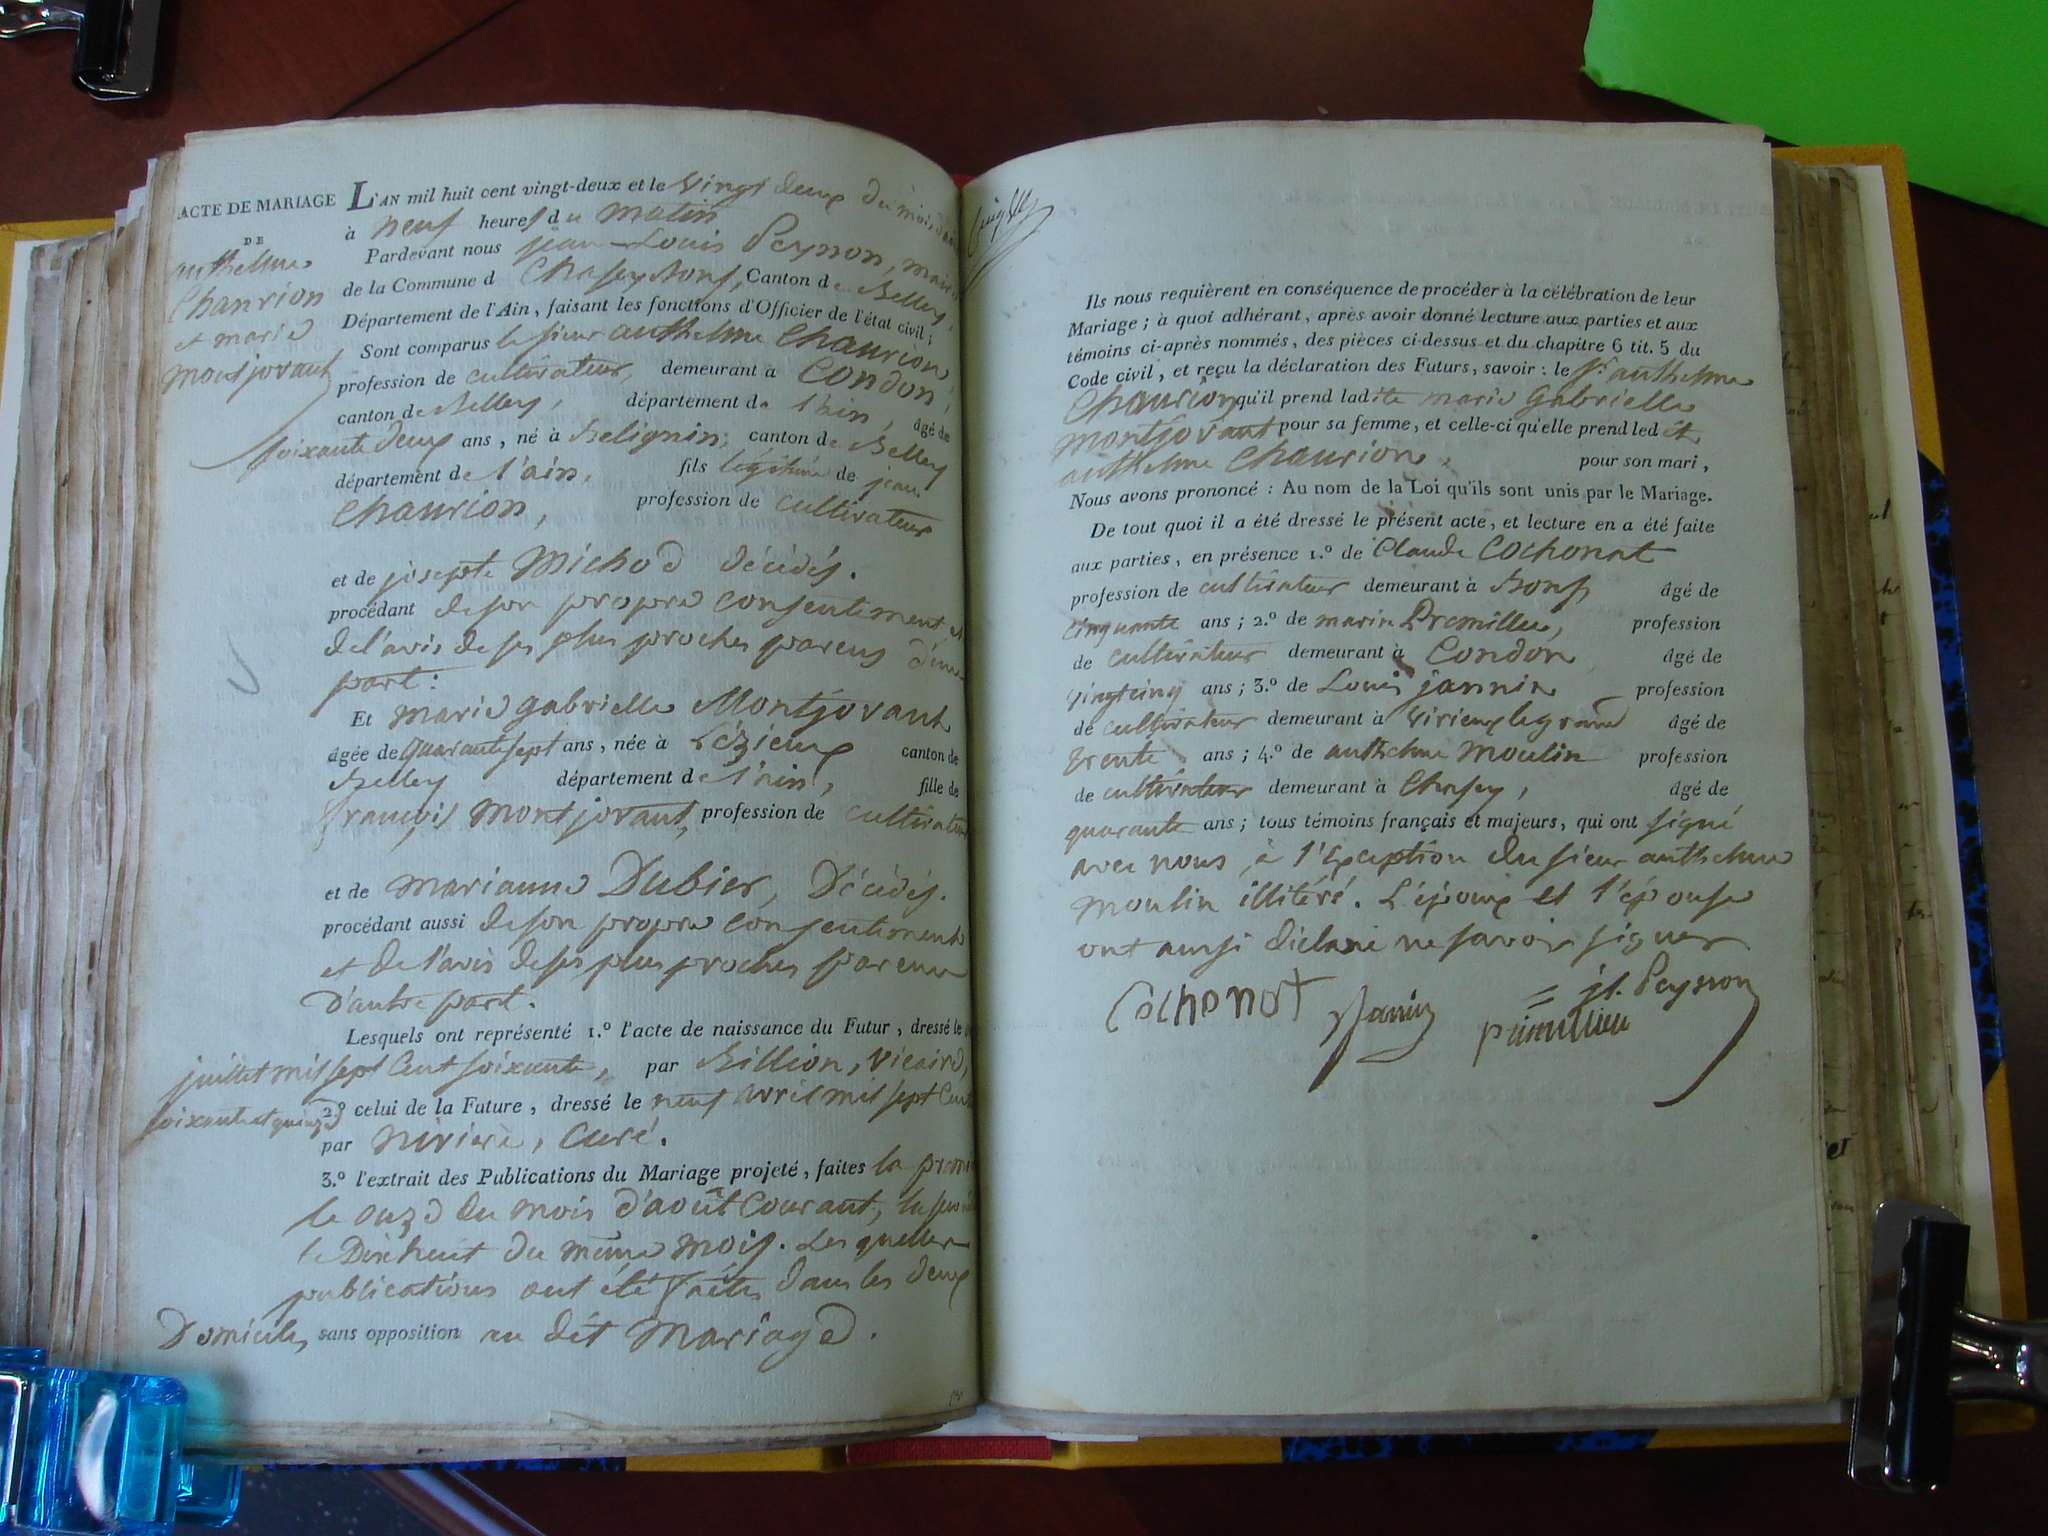 ACTE DE MARIAGE
DE
anthelme
Chanrion
et marie
montjovant
L'AN mil huit cent vingt-deux et le vingt deux du mois d'
à neuf heures du matin
Pardevant nous jean-Louis Peysson, maire
de la Commune d Chasey Bons, Canton de Belley,
Département de l'Ain, faisant les fonctions d'Officier de l'état civil;
Sont comparus le sieur anthelme Chanrion,
profession de cultivateur, demeurant à Condon,
canton de Belley, département de l'ain, âgé de
soixante deux ans, né à Belignin, canton de Belley
département de l'ain, fils légitime de jean
Chanrion, profession de cultivateur
et de josepte Michod décédés.
procédant de son propre consentement et
de l'avis de ses plus proches parens d'une
part:
Et marie gabrielle Montjovant
âgée de quarante sept ans, née à Lézieux canton de
Belley département de l'ain, fille de
françois Montjovant, profession de cultivateur
et de marianne Dubier, Décédés.
procédant aussi de son propre consentement
et de l'avis de ses plus proches parens
d'autre part.
Lesquels ont représenté 1.º l'acte de naissance du Futur, dressé le
juillet mil sept cent soixante, par Billion, vicaire,
2.º celui de la Future, dressé le neuf avril mil sept cent
soixante et quinze
par nivière, curé.
3.º l'extrait des Publications du Mariage projeté, faites la prem
le onze du mois d'août Courant, la
le Dixhuit du même mois. Les quelles
publications ont été faites dans les deux
Domiciles sans opposition au dit Mariage.
Ils nous requièrent en conséquence de procéder à la célébration de leur
Mariage; à quoi adhérant, après avoir donné lecture aux parties et aux
témoins ci-après nommés, des pièces ci-dessus et du chapitre 6 tit. 5 du
Code civil, et reçu la déclaration des Futurs, savoir: le sr anthelme
Chanrion qu'il prend ladite marie Gabrielle
montjovant pour sa femme, et celle-ci qu'elle prend ledit
anthelme Chanrion, pour son mari,
Nous avons prononcé: Au nom de la Loi qu'ils sont unis par le Mariage.
De tout quoi il a été dressé le présent acte, et lecture en a été faite
aux parties, en présence 1.º de Claude Cochonat
profession de cultivateur demeurant à Bons âgé de
cinquante ans; 2.º de marin Premillieu, profession
de cultivateur demeurant à Condon âgé de
vingt cinq ans; 3.º de Louis jannin profession
de cultivateur demeurant à virieux le grand âgé de
trente ans; 4.º de anthelme Moulin profession
de cultivateur demeurant à Chasey, âgé de
quarante ans; tous témoins français et majeurs, qui ont signé
avec nous, à l'exception du sieur anthelme
moulin illitéré. L'époux et l'épouse
ont aussi déclaré ne savoir signer
Cochonat Janin jl. Peysson